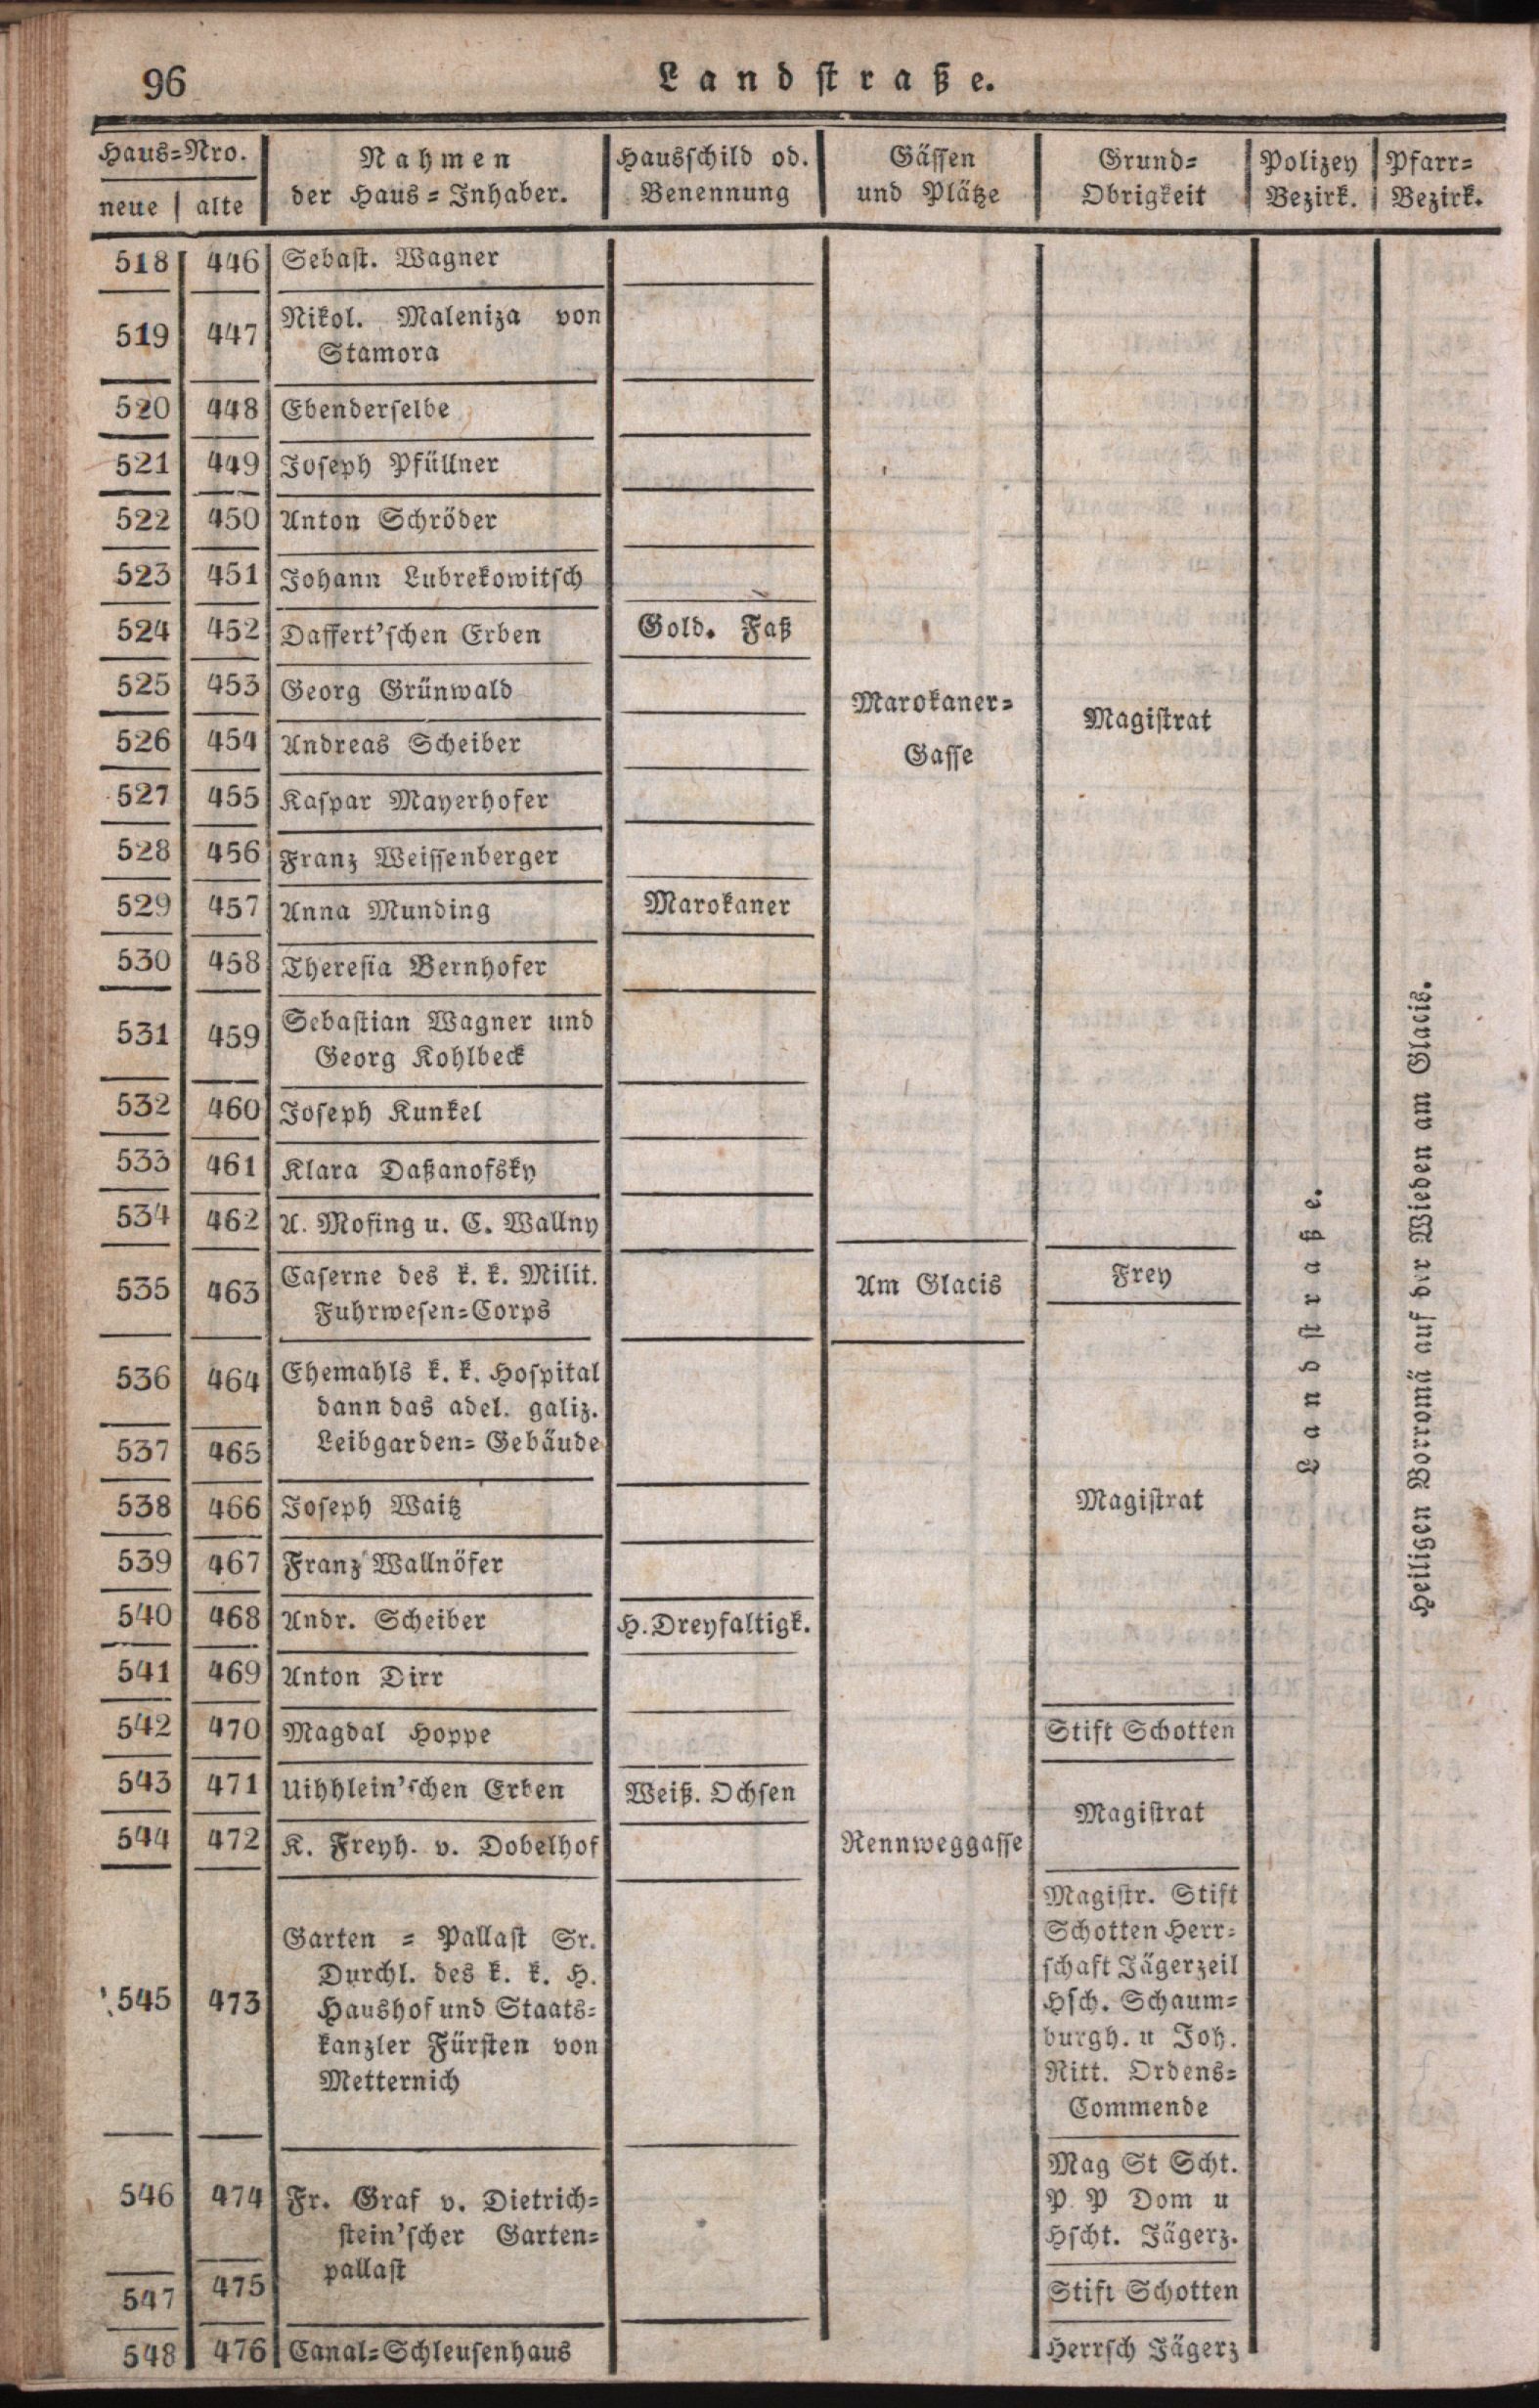 96 Landstraße.
Haus=Nro. Nahmen Hausschild od. Gässen Grund= Polizey Pfarr=
neue alte der Haus=Inhaber. Benennung und Plätze Obrigkeit Bezirk. Bezirk.
518 446 Sebast. Wagner
519 447 Nikol. Maleniza von
Stamora
520 448 Ebenderselbe
521 449 Joseph Pfüllner
522 450 Anton Schröder
523 451 Johann Lubrekowitsch
524 452 Daffert'schen Erben Gold. Faß
525 453 Georg Grünwald
Marokaner= Magistrat
526 454 Andreas Scheiber
Gasse
527 455 Kaspar Mayerhofer
528 456 Franz Weissenberger
529 457 Anna Munding Marokaner
530 458 Theresia Bernhofer
531 459 Sebastian Wagner und
Georg Kohlbeck
532 460 Joseph Kunkel
533 461 Klara Daßanofsky
534 462 A. Mosing u. C. Wallny
535 463 Caserne des k. k. Milit. Am Glacis Frey
Fuhrwesen=Corps
536 464 Ehemahls k. k. Hospital
dann das adel. galiz.
537 465 Leibgarden=Gebäude
538 466 Joseph Waitz Magistrat
539 467 Franz Wallnöfer
540 468 Andr. Scheiber H. Dreyfaltigk.
541 469 Anton Dirr
542 470 Magdal Hoppe Stift Schotten
543 471 Uihhlein'schen Erben Weiß. Ochsen
Magistrat
544 472 K. Freyh. v. Dobelhof Rennweggasse
545 473 Garten = Pallast Sr.
Durchl. des k. k. H.
Haushof und Staats=
kanzler Fürsten von
Metternich
Magistr. Stift
Schotten Herr=
schaft Jägerzeil
Hsch. Schaum=
burgh. u Joh.
Ritt. Ordens=
Commende
546 474 Fr. Graf v. Dietrich=
stein'scher Garten=
pallast
547 475
Mag St Scht.
P. P Dom u
Hscht. Jägerz.
Stift Schotten
548 476 Canal=Schleusenhaus Herrsch Jägerz
Landstraße.
Heiligen Borromä auf der Wieden am Glacis.